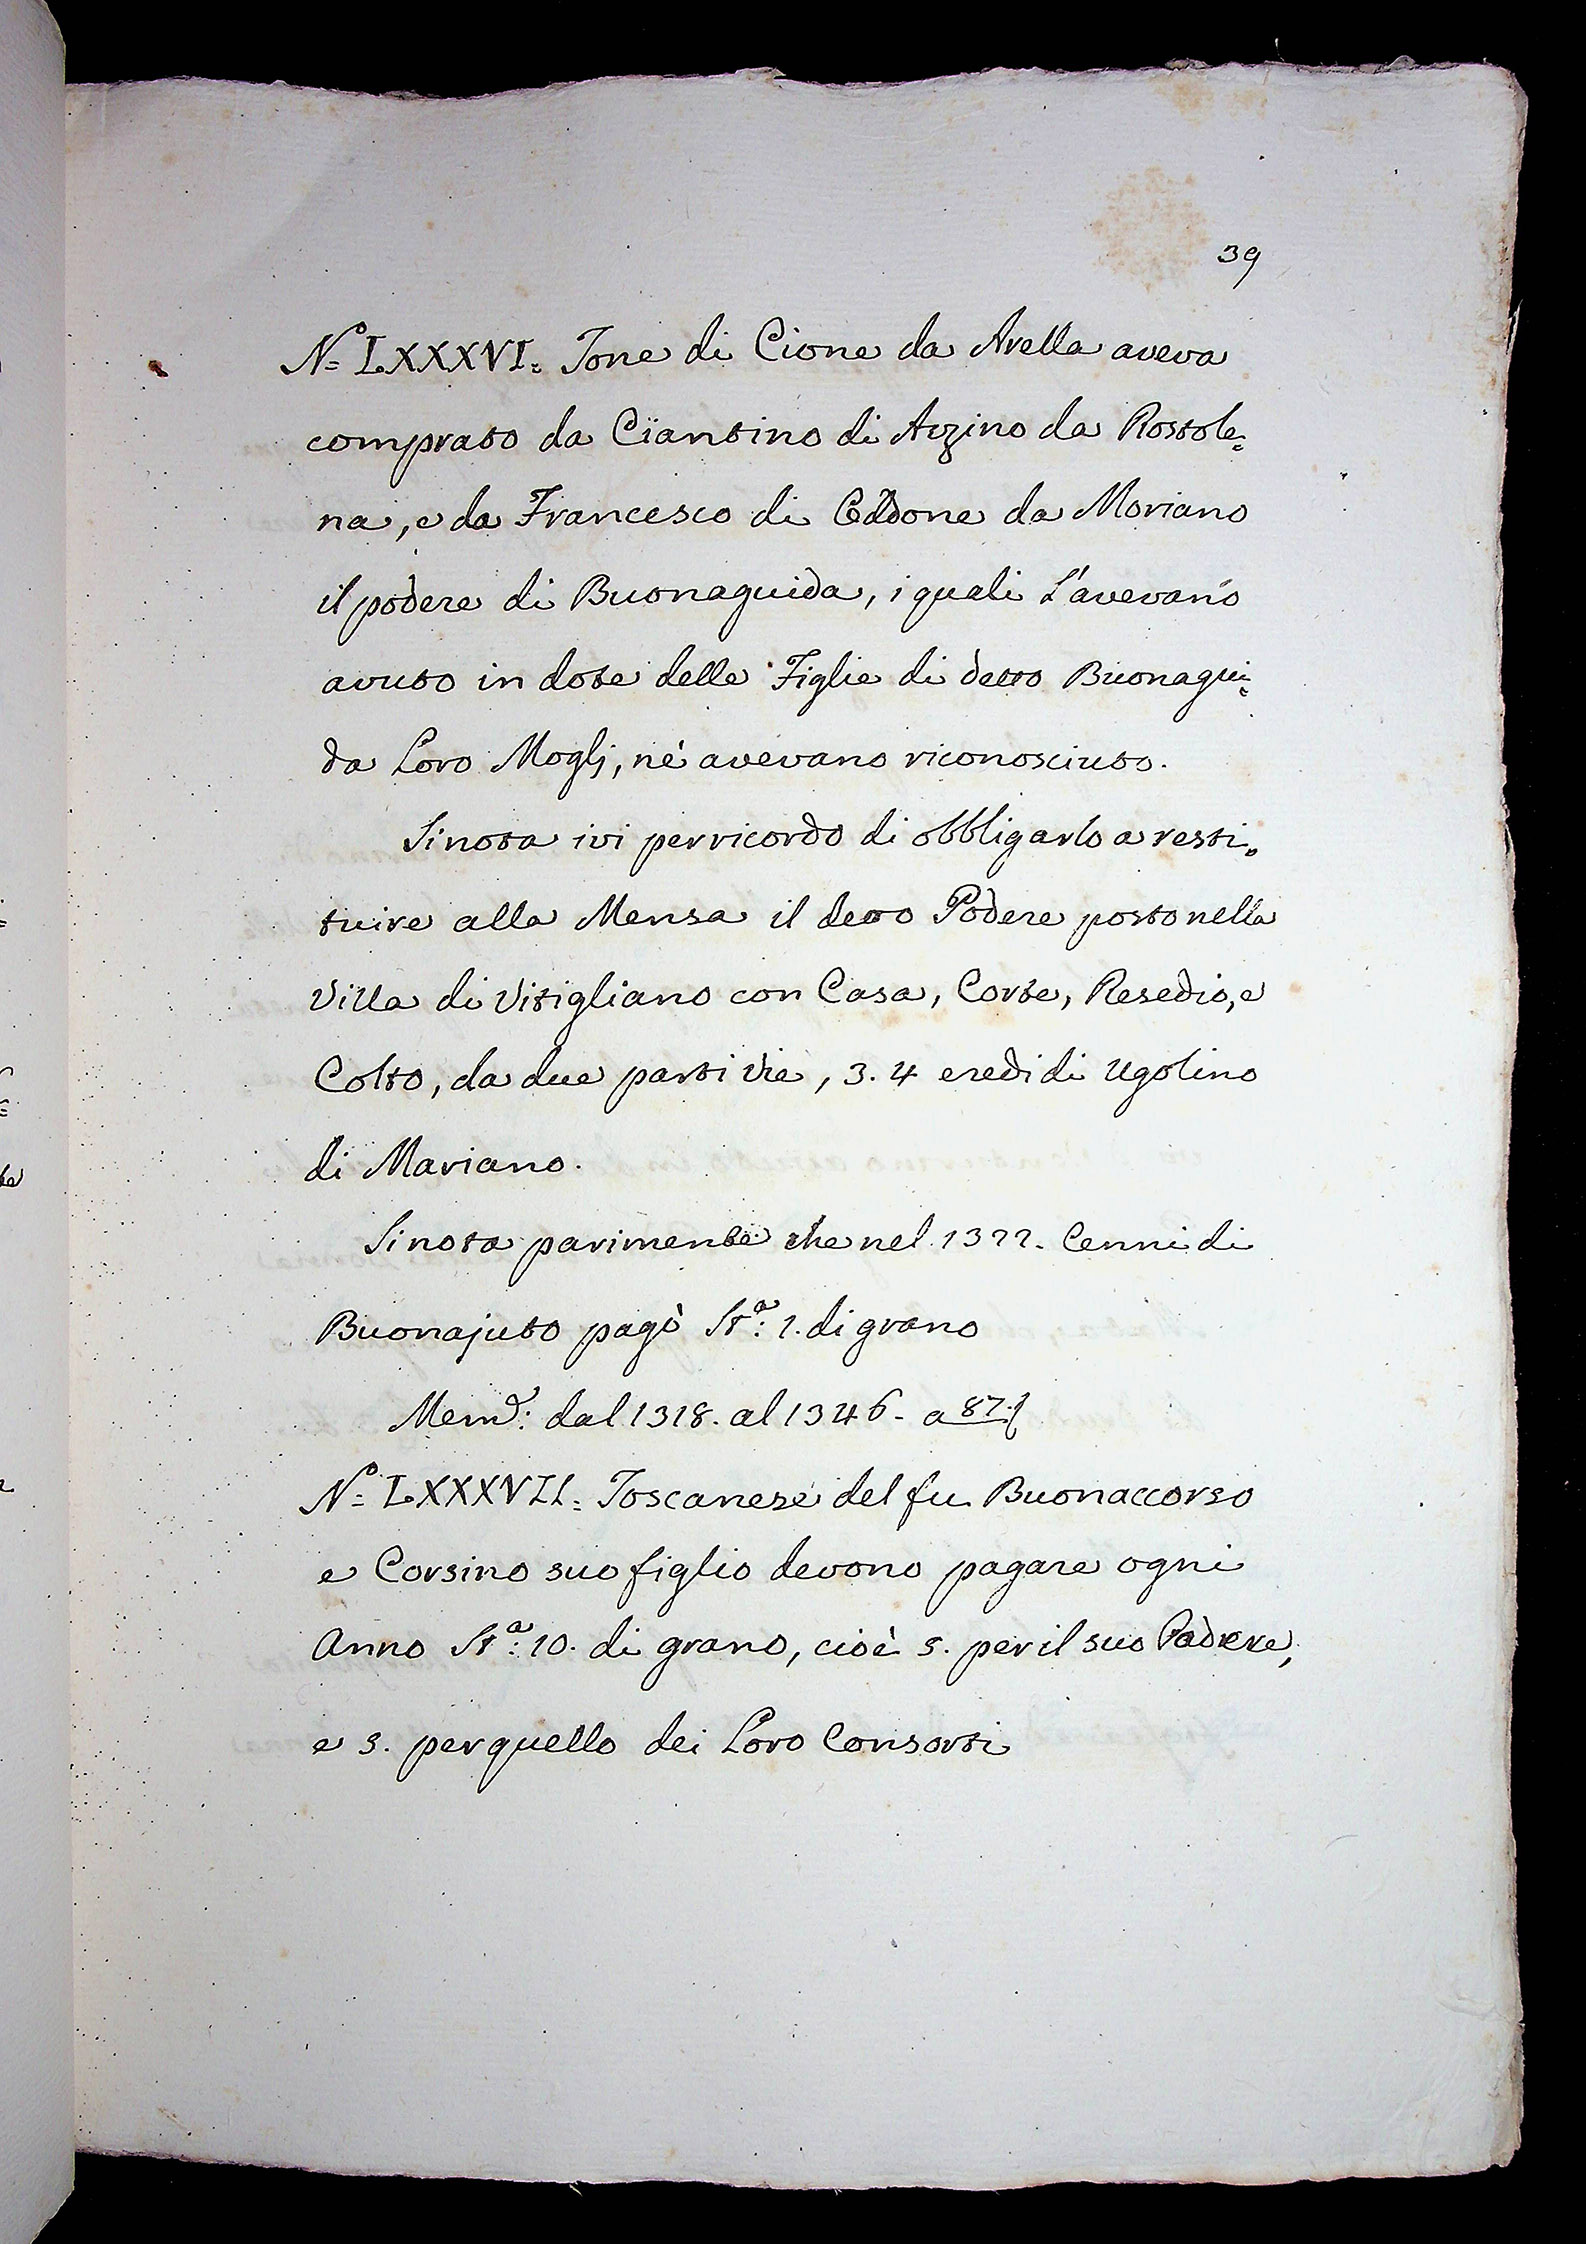 39
N.º LXXXVI. Tone di Cione da Avella aveva
comprato da Ciantino di Azzino da Rostole=
na, e da Francesco di Cddone da Moriano
il podere di Buonaguida, i quali L'avevano
avuto in dote delle Figlie di detto Buonagui=
da Loro Moglj, nè avevano riconosciuto.
Si nota ivi per ricordo di obbligarlo a resti=
tuire alla Mensa il detto Podere posto nella
Villa di Vitigliano con Casa, Corte, Resedio, e
Colto, da due parti Vie, 3. 4 eredi di Ugolino
di Mariano.
Si nota parimente che nel 1322. Cenni di
Buonajuto pagò St.ª: 1. di grano
Mem.: dal 1318. al 1346. a 87.
N.º LXXXVII. Toscanese del fu Buonaccorso
e Corsino suo figlio devono pagare ogni
Anno St.ª: 10. di grano, cioè 5. per il suo Padrere,
e 5. per quello dei Loro Consorti